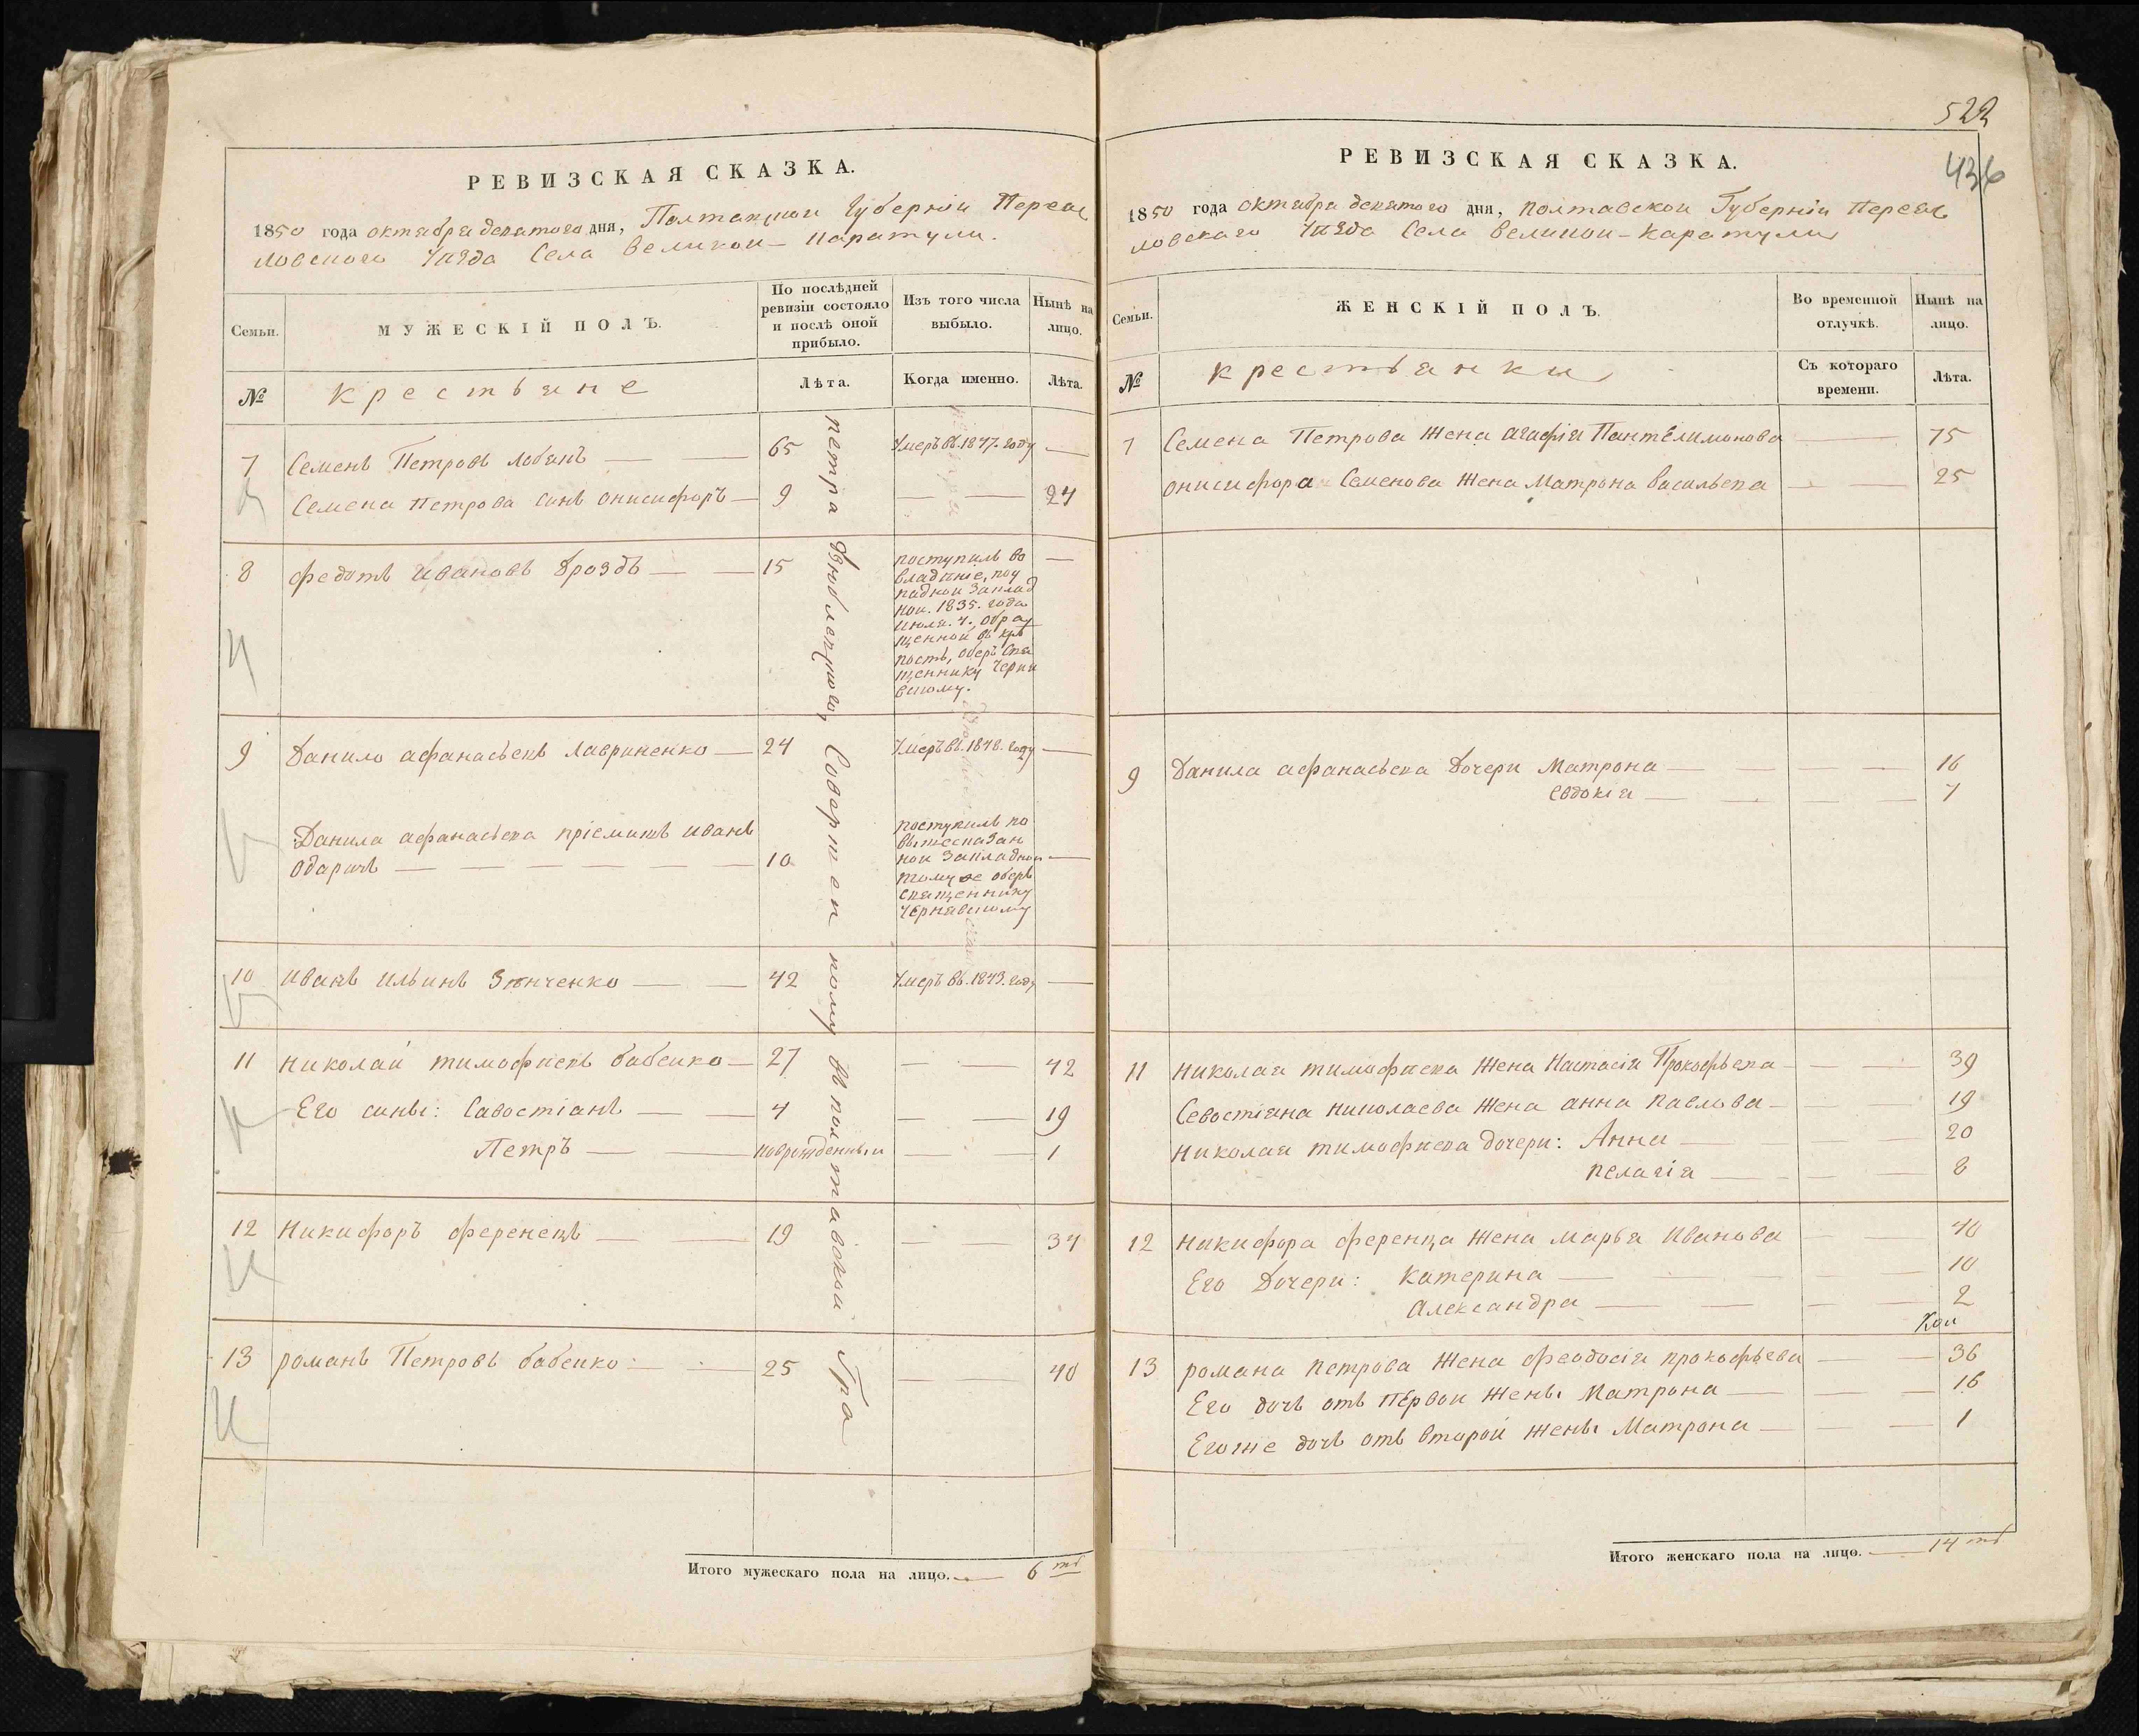 РЕВИЗСКАЯ СКАЗКА.
1850 года октября девятого дня, Полтавской Губерніи Переяс
ловского уѣзда Села Великой-Каратули.
Семьи.
МУЖЕСКІЙ ПОЛЪ.
По послѣдней ревизіи состояло и послѣ оной прибыло.
Изъ того числа выбыло.
Нынѣ на лицо.
№
крестьяне
Лѣта.
Когда именно.
Лѣта.
7 Семенъ Петровъ Лобанъ — — 65 Умеръ въ. 1847. году —
Семена Петрова синъ Онисифоръ — 9 — — 24
8 Федотъ Ивановъ Дроздъ — — 15 поступилъ во —
владѣніе, по у
ѣздной заклад
ной. 1835. года
июля. 4. обра
щенной въ крѣ
пость, оберъ Свя
щеннику Черня
вскому.
9 Данило Афанасьевъ Лавриненко — 24 Умеръ въ. 1848. году —
Данила Афанасьева пріемишъ Иванъ
Одаричъ — — — — — 10 поступилъ по
вышесказан
ной закладной —
тому же оберъ
священнику
Чернявскому
10 Иванъ Ильинъ Зѣнченко — — 42 Умеръ въ. 1843. году —
11 Николай Тимофѣевъ Бабенко — 27 — — 42
Его сины: Савостіанъ — — 4 — — 19
Петръ — — новрожденный — — 1
12 Никифоръ Ференецъ — — 19 — 34
13 Романъ Петровъ Бабенко: — — 25 — — 40
Петра Яковлевскаго,
Итого мужескаго пола на лицо. — 6 тъ
522
436
РЕВИЗСКАЯ СКАЗКА.
1850 года октября девятого дня, Полтавской Губерніи Переяс
ловского уѣзда Села Великой-Каратули
Семьи.
ЖЕНСКІЙ ПОЛЪ.
Во временной отлучкѣ.
Нынѣ на лицо.
№
крестьянки
Съ котораго времени.
Лѣта.
7 Семена Петрова жена Агафія Пантелимонова — 75
Онисифора Семенова жена Матрона Васильева — — 25
9 Данила Афанасьева дочери Матрона — — — 16
Евдокія — — — — 7
11 Николая Тимофѣева жена Настасія Прокофьева — — — 39
Севостіана Николаева жена Анна Павлова — — — 19
Николая Тимофѣева дочери: Анна — — 20
Пелагія — — — — 8
12 Никифора Ференца жена Марья Иванова — 40
Его Дочери: Катерина — — — — 10
Александра — — — — 2
13 Романа Петрова жена Феодосія Прокофьева — — 36
Его дочь отъ первой жены Матрона — — — 16
Егоже дочь отъ второй жены Матрона — — — 1
Итого женскаго пола на лицо. — 14 тъ